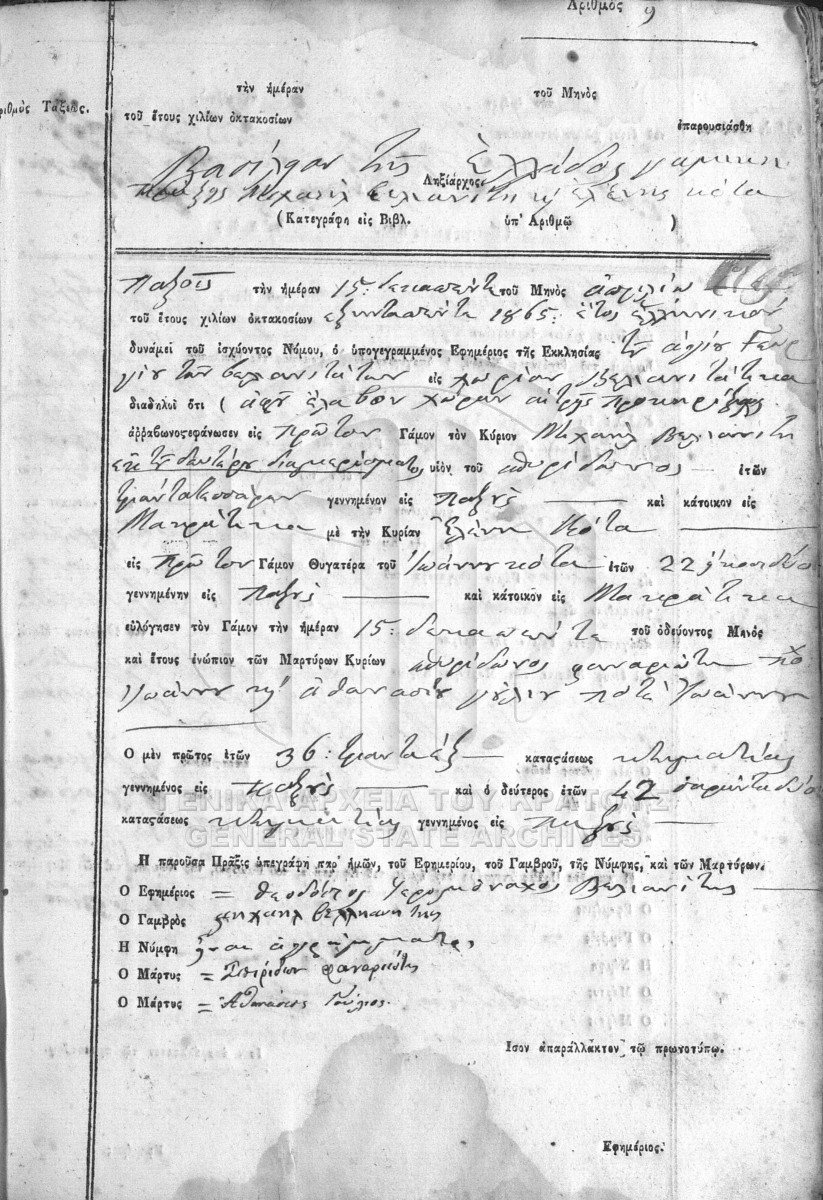 Ἀριθμὸς 9
ριθμὸς Ταξιας.
τὴν ἡμέραν τοῦ Μηνὸς
τοῦ ἔτους χιλίων ὀκτακοσίων ἐπαρουσιάσθη
Βασίλειον τῆς Ἑλλάδος γαμικὴ
Ληξίαρχος.
πρᾶξις Μιχαὴλ Βελιανίτη κ Ἑλένης Κότα
( Κατεγράφη εἰς Βιβλ. ὑπ' Ἀριθμῷ )
Παξοῖς τὴν ἡμέραν 15: δεκαπέντε τοῦ Μηνὸς ἀπριλίου
τοῦ ἔτους χιλίων ὀκτακοσίων ἑξηνταπέντε 1865: ἔτος ἑλληνικὸν
δυνάμει τοῦ ἰσχύοντος Νόμου, ὁ ὑπογεγραμμένος Ἐφημέριος τῆς Ἐκκλησίας τοῦ ἁγίου Γεωρ
γίου τῶν βελιανιτάτων εἰς χωρίον Βελιανιτάτικα
διαδηλοῖ ὅτι ( ἀφοῦ ἔλαβον χώραν αἱ τρεῖς προκηρύξεις
ἀῤῥαβωνοςεφάνωσεν εἰς πρῶτον Γάμον τὸν Κύριον Μιχαὴλ Βελιανίτη
ἐκ τοῦ δευτέρου διαμερίσματος υἱὸν τοῦ σπυρίδωνος ἐτῶν
τριάντατεσσάρων γεννημένον εἰς Παξοὺς καὶ κάτοικον εἰς
Μακράτικα μὲ τὴν Κυρίαν Ἑλένη Κότα
εἰς πρῶτον Γάμον Θυγατέρα τοῦ Ἰωάννου Κότα ἐτῶν 22 εἰκοσιδύο
γεννημένην εἰς Παξοὺς καὶ κάτοικον εἰς Μακράτικα
εὐλόγησεν τὸν Γάμον τὴν ἡμέραν 15: δεκαπέντε τοῦ ὁδεύοντος Μηνὸς
καὶ ἔτους ἐνώπιον τῶν Μαρτύρων Κυρίων σπυρίδωνος φαναριώτη
Ἰωάννου κ ἀθανασίου γούλιου ποτὲ Ἰωάννου
Ὁ μὲν πρῶτος ἐτῶν 36: τριανταέξ καταςάσεως κτηματίας
γεννημένος εἰς Παξοὺς καὶ ὁ δεύτερος ἐτῶν 42 σαρανταδύο
καταςάσεως κτηματίας γεννημένος εἰς Παξοὺς
ΓΕΝΙΚΑ ΑΡΧΕΙΑ ΤΟΥ ΚΡΑΤΟΥΣ
GENERAL STATE ARCHIVES
Ἡ παροῦσα Πρᾶξις ὑπεγράφη παρ' ἡμῶν, τοῦ Ἐφημερίου, τοῦ Γαμβροῦ, τῆς Νύμφης, καὶ τῶν Μαρτύρων.
Ὁ Ἐφημέριος = Θεοδόσιος Ἱερομόναχος Βελιανίτης
Ὁ Γαμβρὸς μηχαηλ βεληανητης
Ἡ Νύμφη εἶναι ἀγράμματος
Ὁ Μάρτυς = Σπυρίδων Φαναριώτης
Ὁ Μάρτυς = Ἀθανάσιος Γούλιος.
Ἴσον ἀπαράλλακτον τῷ πρωτοτύπῳ.
Ἐφημέριος.